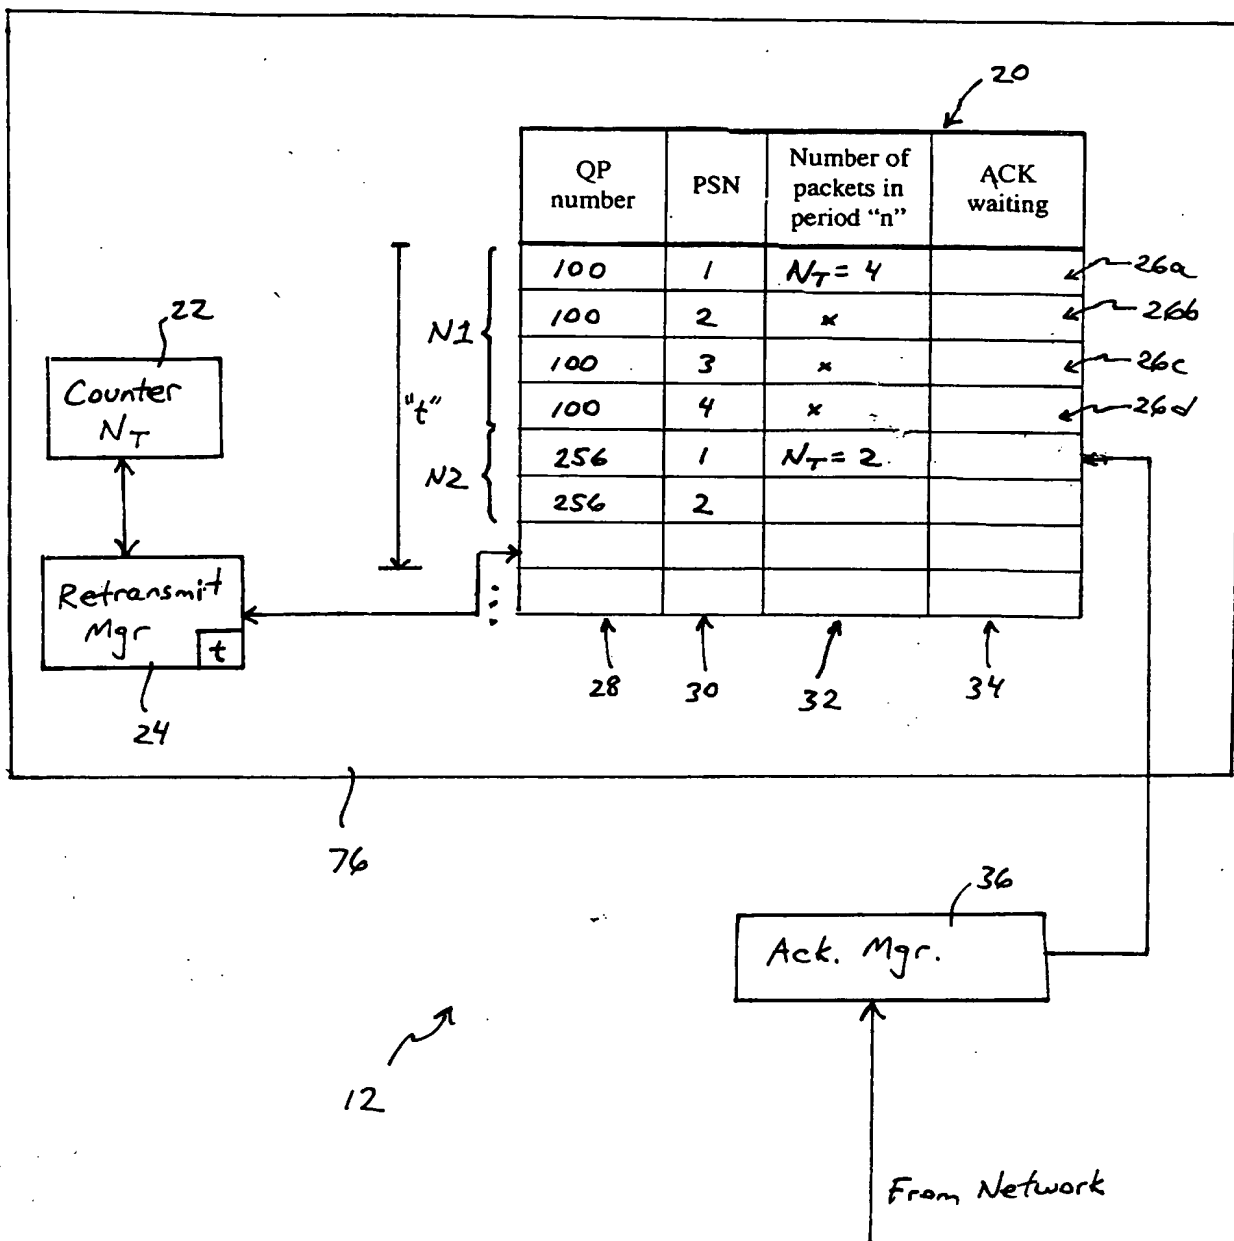 20
QP number
PSN
Number of packets in period "n"
ACK waiting
100 1 N_T = 4
26a
100 2 x
26b
100 3 x
26c
100 4 x
26d
256 1 N_T = 2
256 2
N1
N2
"t"
22
Counter
N_T
Retransmit
Mgr
t
24
28
30
32
34
76
36
Ack. Mgr.
12
From Network